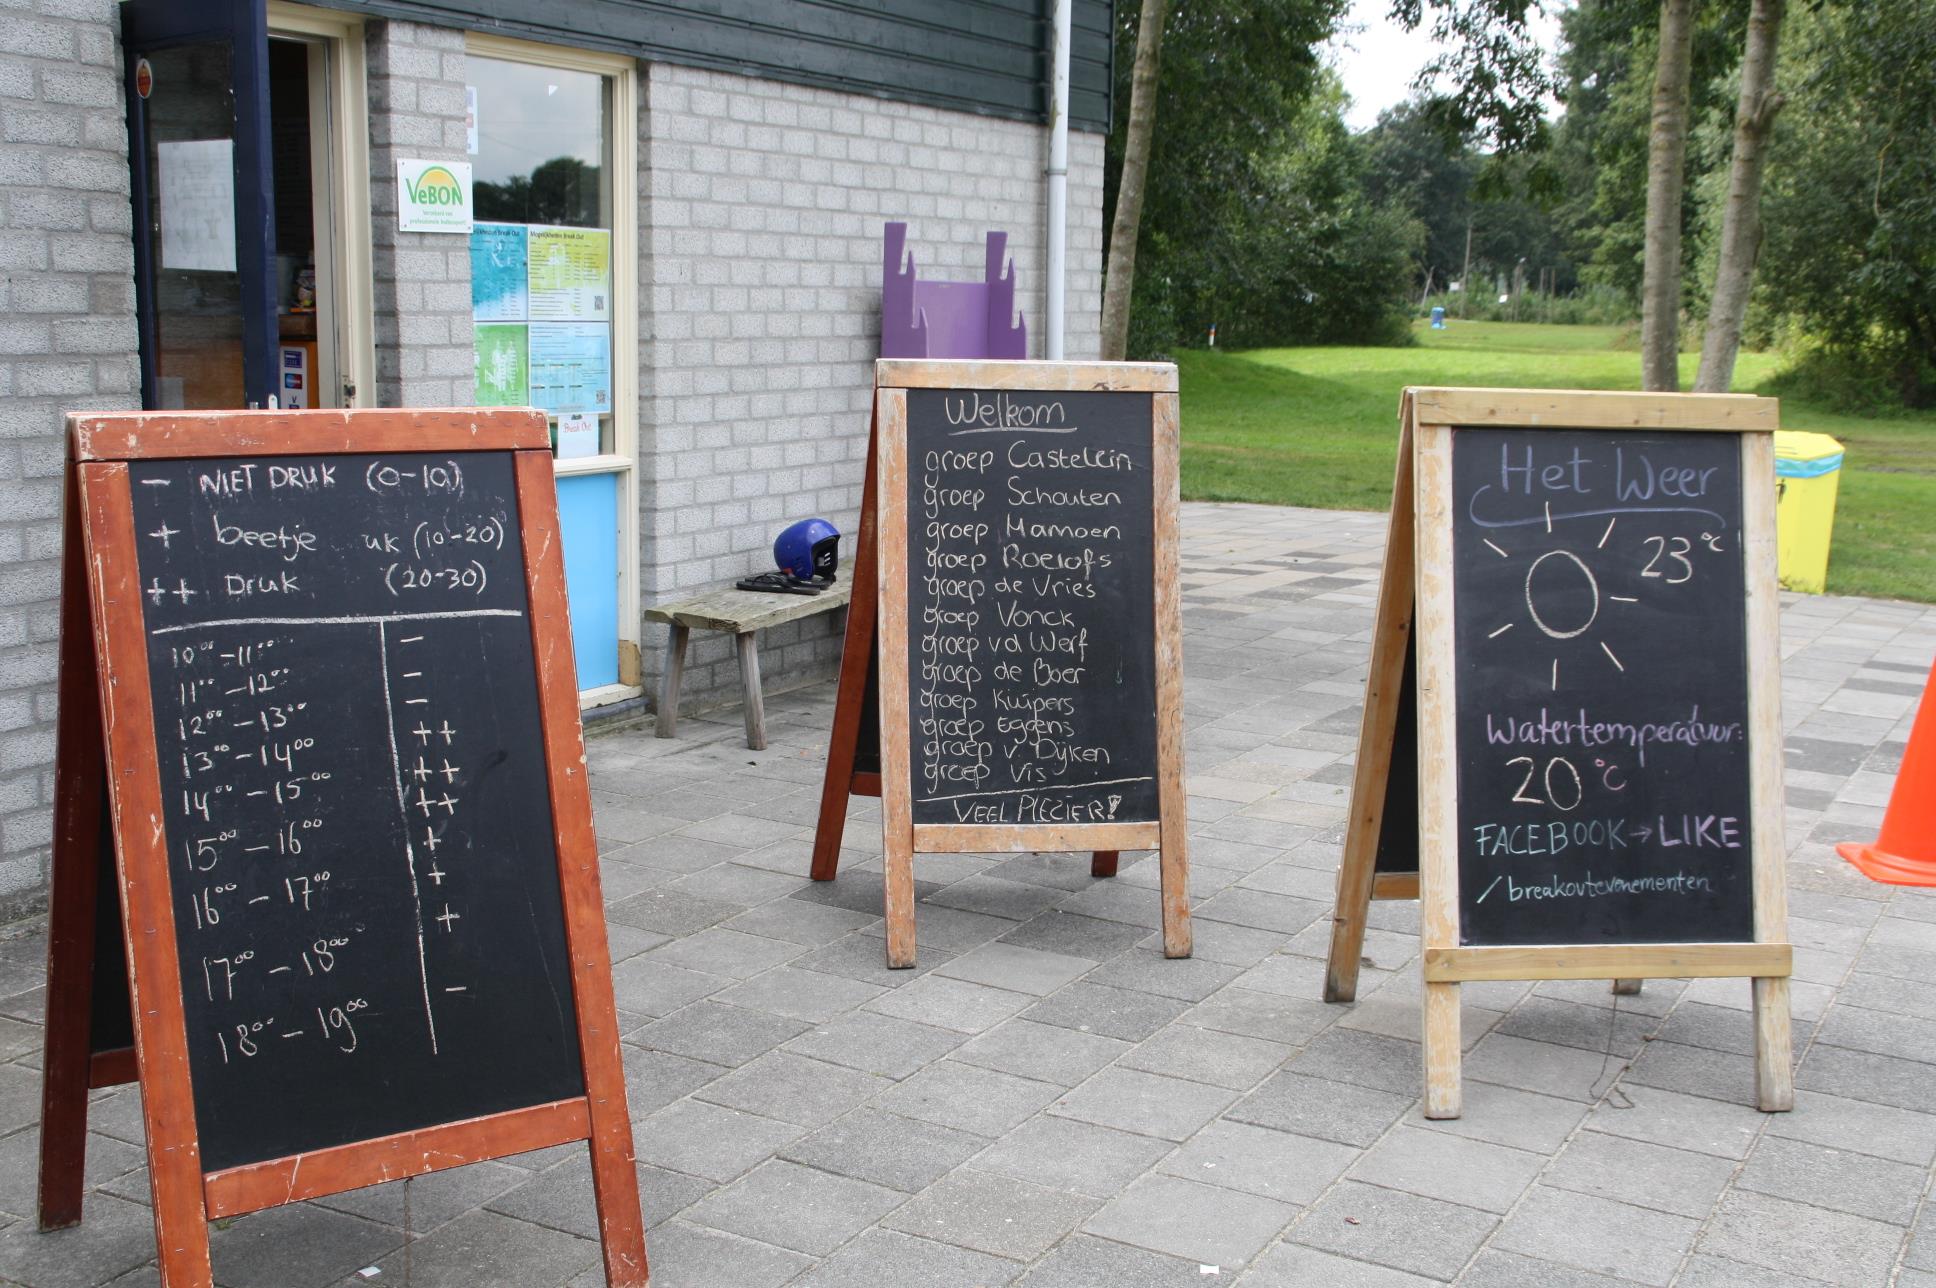 VeBON
Verzekerd van
professionele buitensport!
Mogelijkheden Break Out
Break Out
- NIET DRUK (0-10)
+ beetje uk (10-20)
++ DRUK (20-30)
10°° - 11°° -
11°° - 12°° -
12°° - 13°° -
13°° - 14°° ++
14°° - 15°° ++
15°° - 16°° ++
16°° - 17°° +
17°° - 18°° +
18°° - 19°° +
-
Welkom
groep Castelein
groep Schouten
groep Mamoen
groep Roelofs
groep de Vries
groep Vonck
groep vd Werf
groep de Boer
groep Kuijpers
groep Eggens
groep v. Dijken
groep Vis
VEEL PLEZIER!
Het Weer
23°C
Watertemperatuur:
20°C
FACEBOOK → LIKE
/breakoutevenementen